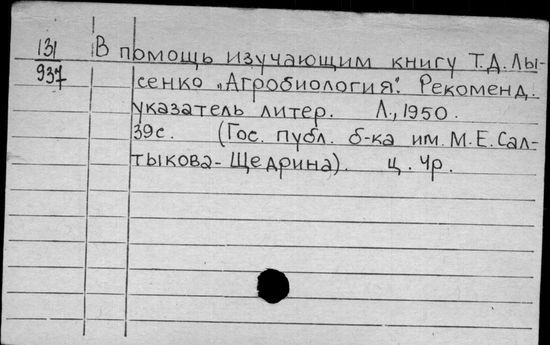 131 В помощь изучающим книгу Т.Д. Лы-
937 сенко „Агробиология". Рекоменд.
указатель литер. Л., 1950.
39с. (Гос. публ. б-ка им. М.Е. Сал-
тыкова-Щедрина). ц. 4р.